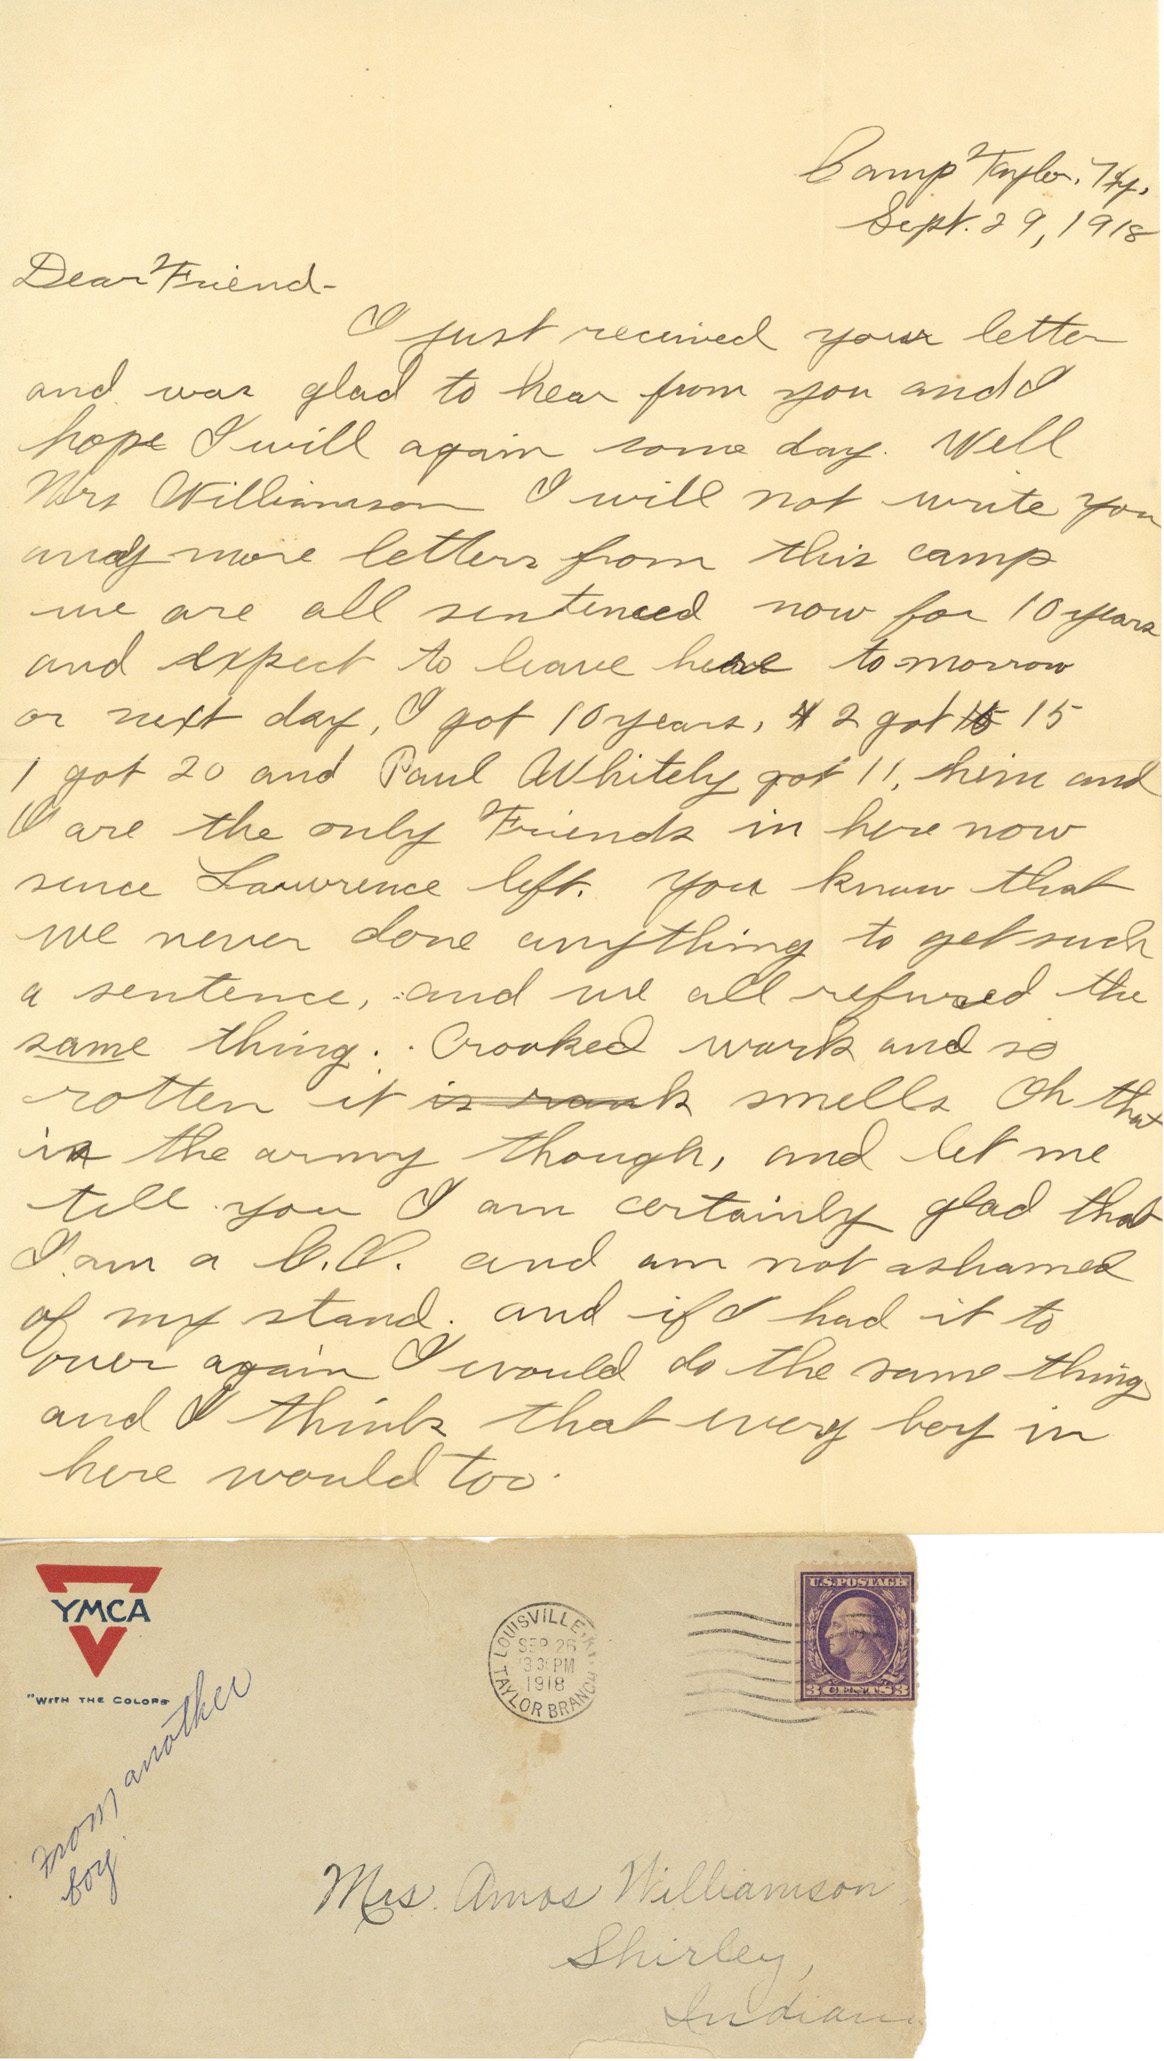 Camp Taylor, Ky.
Sept. 29, 1918
Dear Friend-
I just received your letter
and was glad to hear from you and I
hope I will again some day. Well
Mrs Williamson I will not write you
any more letters from this camp
we are all sentenced now for 10 years
and expect to leave here tomorrow
or next day, I got 10 years, 2 got 15
1 got 20 and Paul Whitely got 11, him and
I are the only Friends in here now
since Lawrence left. you know that
we never done anything to get such
a sentence, and we all refused the
same thing. Crooked work and so
rotten it is rank smells Oh that
is the army though, and let me
tell you I am certainly glad that
I am a C.O. and am not ashamed
of my stand. and if I had it to
over again I would do the same thing
and I think that every boy in
here would too.
YMCA
"WITH THE COLORS"
LOUISVILLE, KY.
SEP 26
3 30 PM
1918
TAYLOR BRANCH
U.S. POSTAGE
3 CENTS 3
From another
boy
Mrs. Amos Williamson
Shirley,
Indiana